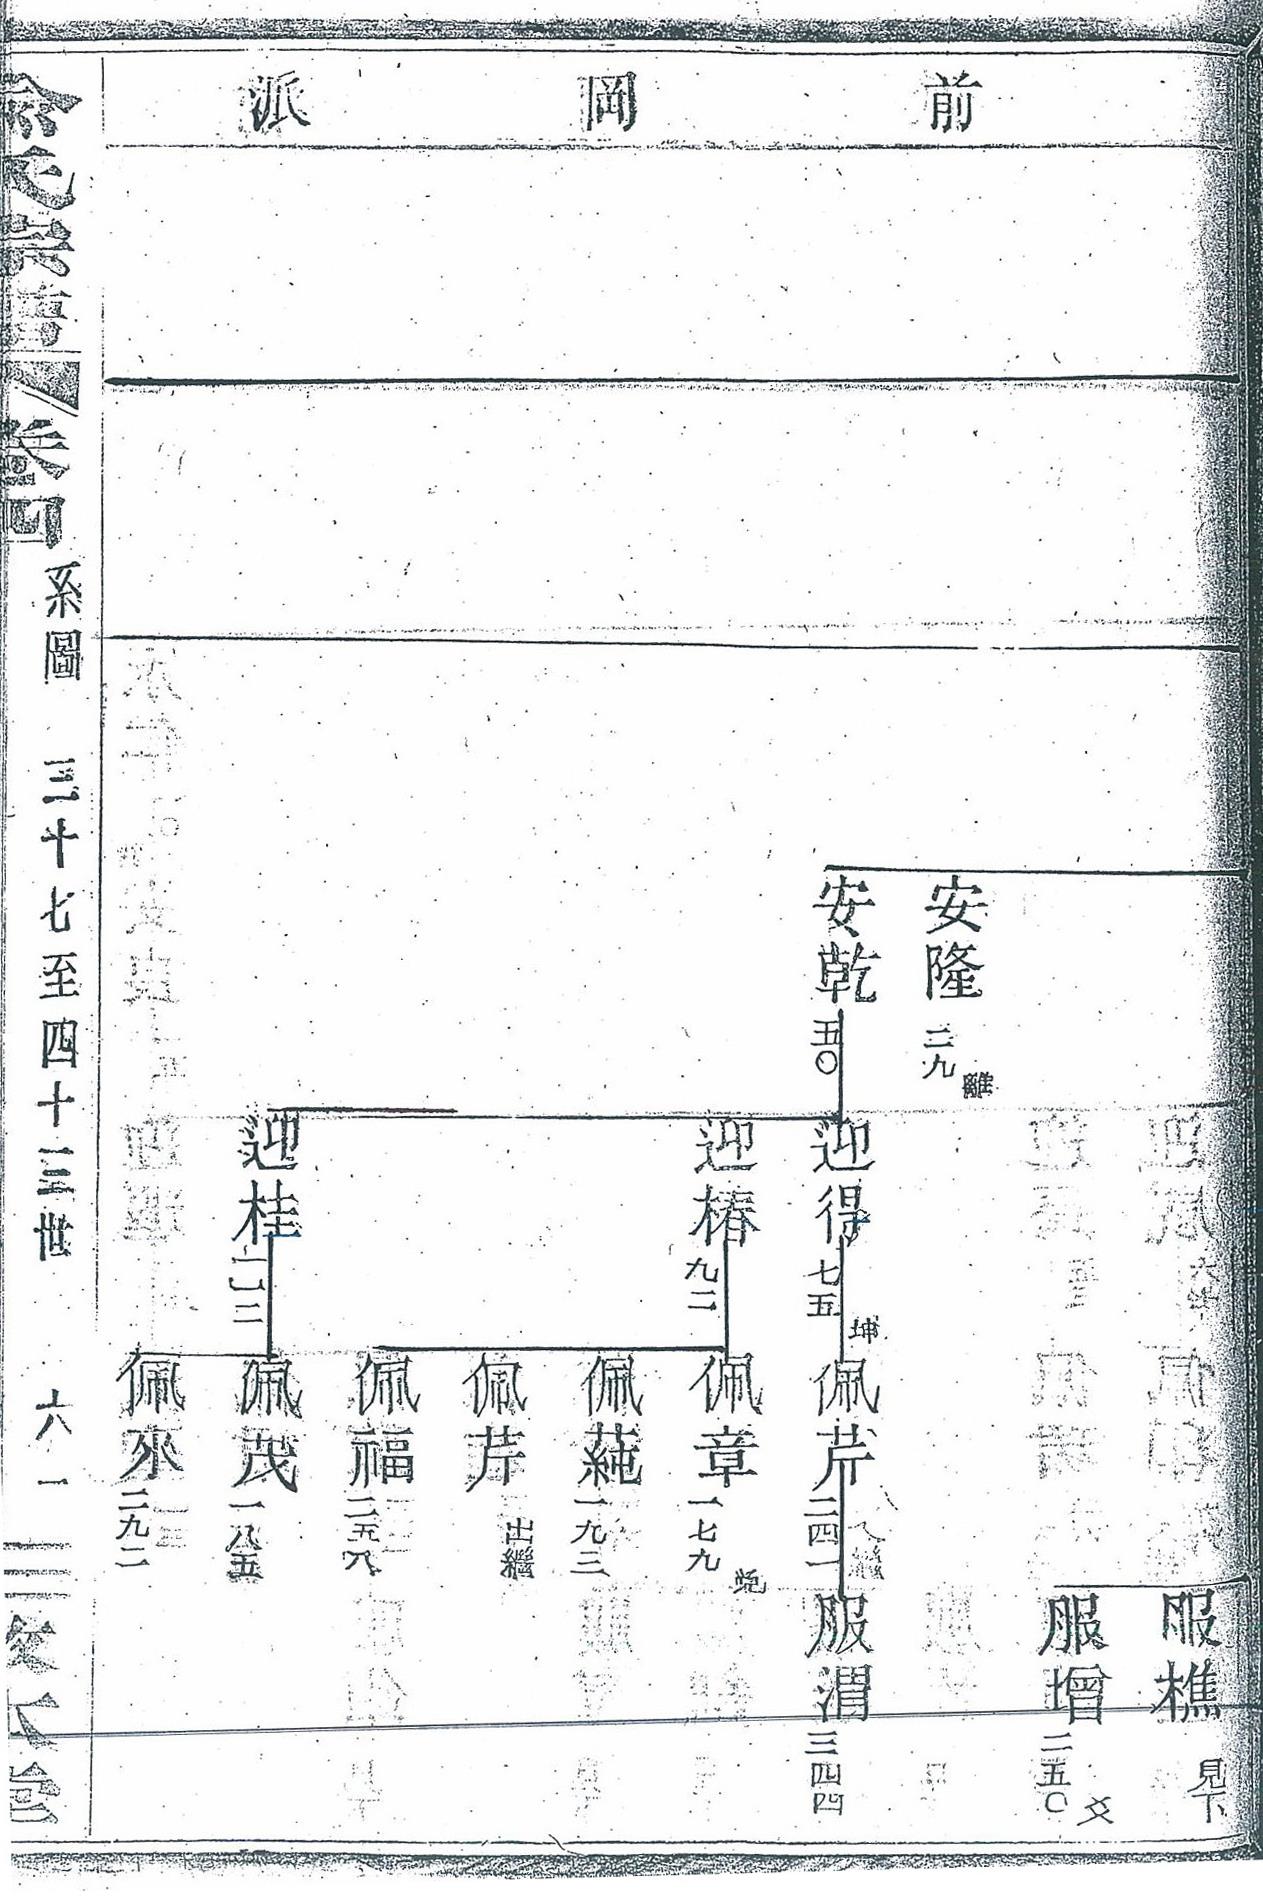 前岡派
安隆
二九
離
安乾
五〇
迎得
七五
坤
迎椿
九二
迎桂
佩芹
二四一
入繼
佩章
一七九
佩蒓
一九三
佩芹
出繼
佩福
二五六
佩茂
一八五
佩來
二九二
服樵
見下
服增
二五〇
爻
服渭
三四四
俞氏宗譜
卷四
系圖
三十七至四十三世
六一